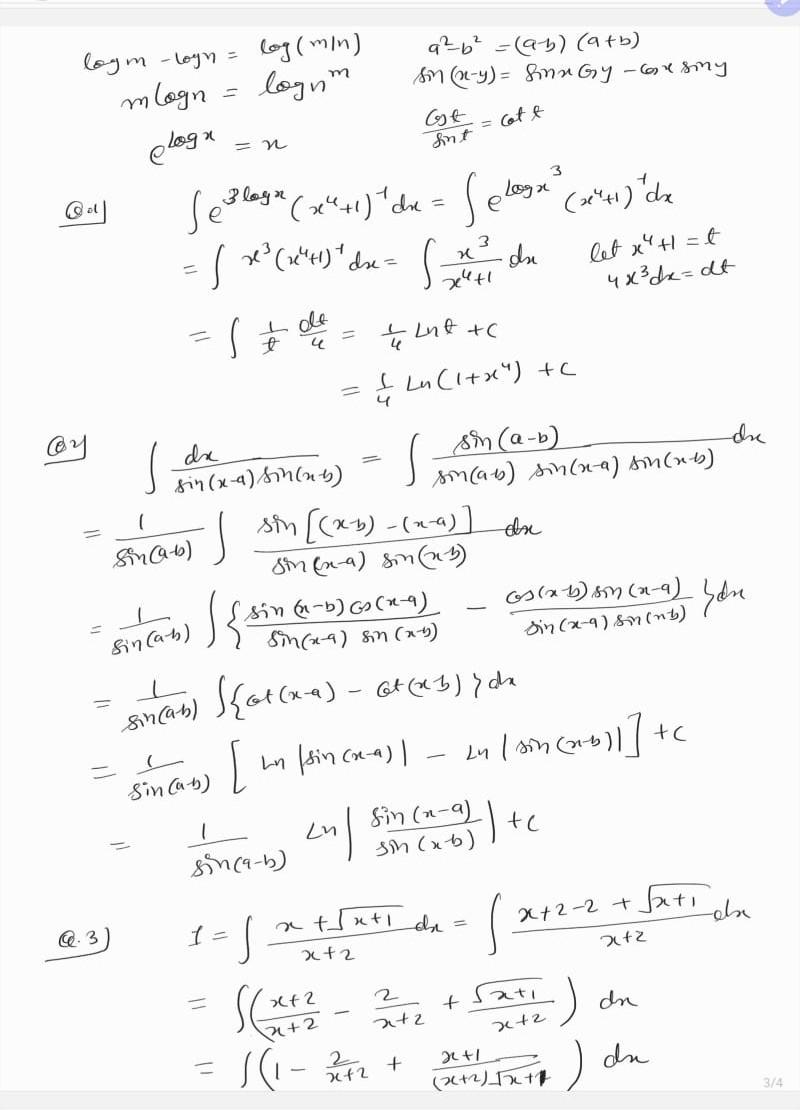 log m - log n = log(m/n)    a² - b² = (a-b) (a+b)
m log n = log n^m    sin(x-y) = sin x cos y - cos x sin y
e^(log x) = x    cos t / sin t = cot t
Q.1) ∫ e^(3 log x) (x⁴+1)^-1 dx = ∫ e^(log x³) (x⁴+1)^-1 dx
= ∫ x³ (x⁴+1)^-1 dx = ∫ x³/(x⁴+1) dx    let x⁴+1 = t
4x³dx = dt
= ∫ 1/t dt/4 = 1/4 Ln t + c
= 1/4 Ln(1+x⁴) + c
Q.2) ∫ dx / (sin(x-a) sin(x-b)) = ∫ sin(a-b) / (sin(a-b) sin(x-a) sin(x-b)) dx
= 1/sin(a-b) ∫ sin[(x-b) - (x-a)] / (sin(x-a) sin(x-b)) dx
= 1/sin(a-b) ∫ { sin(x-b) cos(x-a) / (sin(x-a) sin(x-b)) - cos(x-b) sin(x-a) / (sin(x-a) sin(x-b)) } dx
= 1/sin(a-b) ∫ {cot(x-a) - cot(x-b)} dx
= 1/sin(a-b) [ Ln |sin(x-a)| - Ln |sin(x-b)| ] + c
= 1/sin(a-b) Ln | sin(x-a) / sin(x-b) | + c
Q.3) I = ∫ (x + √(x+1)) / (x+2) dx = ∫ (x+2-2 + √(x+1)) / (x+2) dx
= ∫ ( (x+2)/(x+2) - 2/(x+2) + √(x+1)/(x+2) ) dx
= ∫ ( 1 - 2/(x+2) + (x+1)/((x+2)√(x+1)) ) dx
3/4